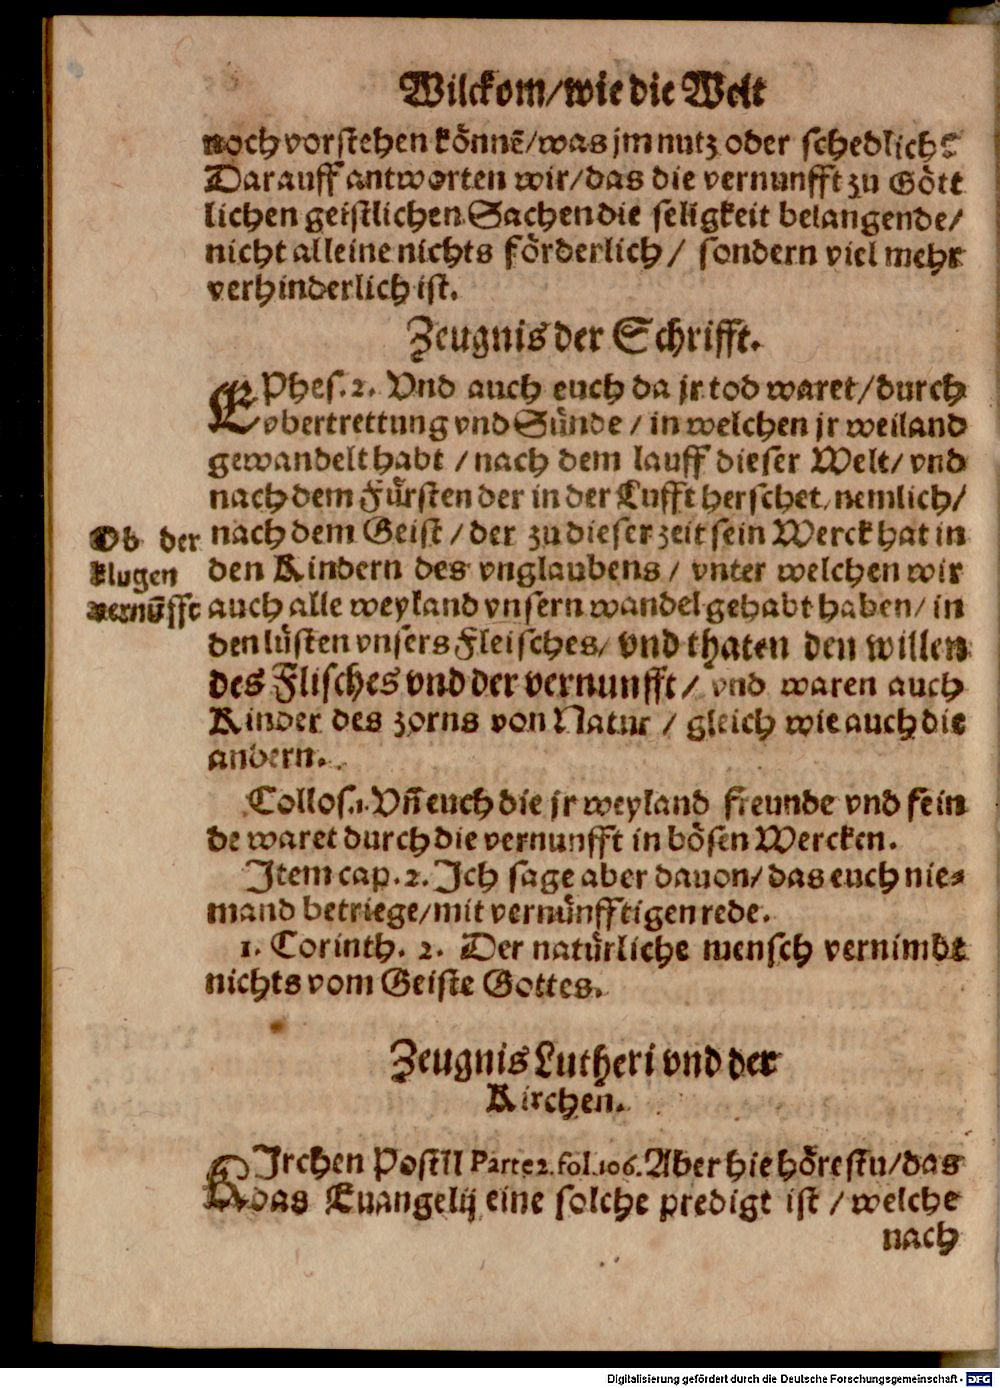 Wilckom/wie die Welt
noch vorstehen könnẽ/was jm nutz oder schedlich?
Darauff antworten wir/das die vernunfft zu Gött
lichen geistlichen Sachen die seligkeit belangende/
nicht alleine nichts förderlich/ sondern viel mehr
verhinderlich ist.
Zeugnis der Schrifft.
EPhes. 2. Vnd auch euch da jr tod waret/durch
vbertrettung vnd Sünde / in welchen jr weiland
gewandelt habt / nach dem lauff dieser Welt/ vnd
nach dem Fürsten der in der Lufft herschet/ nemlich/
nach dem Geist / der zu dieser zeit sein Werck hat in
den Kindern des vnglaubens / vnter welchen wir
auch alle weyland vnsern wandel gehabt haben/ in
den lüsten vnsers Fleisches/ vnd thaten den willen
des Flisches vnd der vernunfft/ vnd waren auch
Kinder des zorns von Natur / gleich wie auch die
andern.
Ob der
klugen
vernũfft
Collos. 1. Vñ euch die jr weyland freunde vnd fein
de waret durch die vernunfft in bösen Wercken.
Item cap. 2. Ich sage aber dauon/ das euch nie⸗
mand betriege/mit vernünfftigen rede.
1. Corinth. 2. Der natürliche mensch vernimbt
nichts vom Geiste Gottes.
Zeugnis Lutheri vnd der
Kirchen.
KIrchen Postill Parte 2. fol. 106. Aber hie hörestu/das
das Euangelij eine solche predigt ist / welche
nach
Digitalisierung gefördert durch die Deutsche Forschungsgemeinschaft - DFG